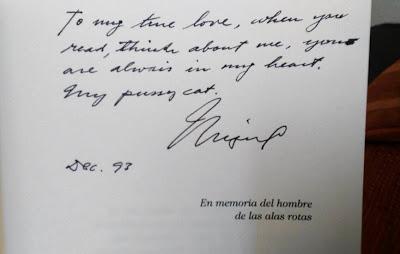 To my true love, when you
read, think about me, you
are alwais in my heart.
my pussy cat.
Miguel
Dec. 93
En memoria del hombre
de las alas rotas